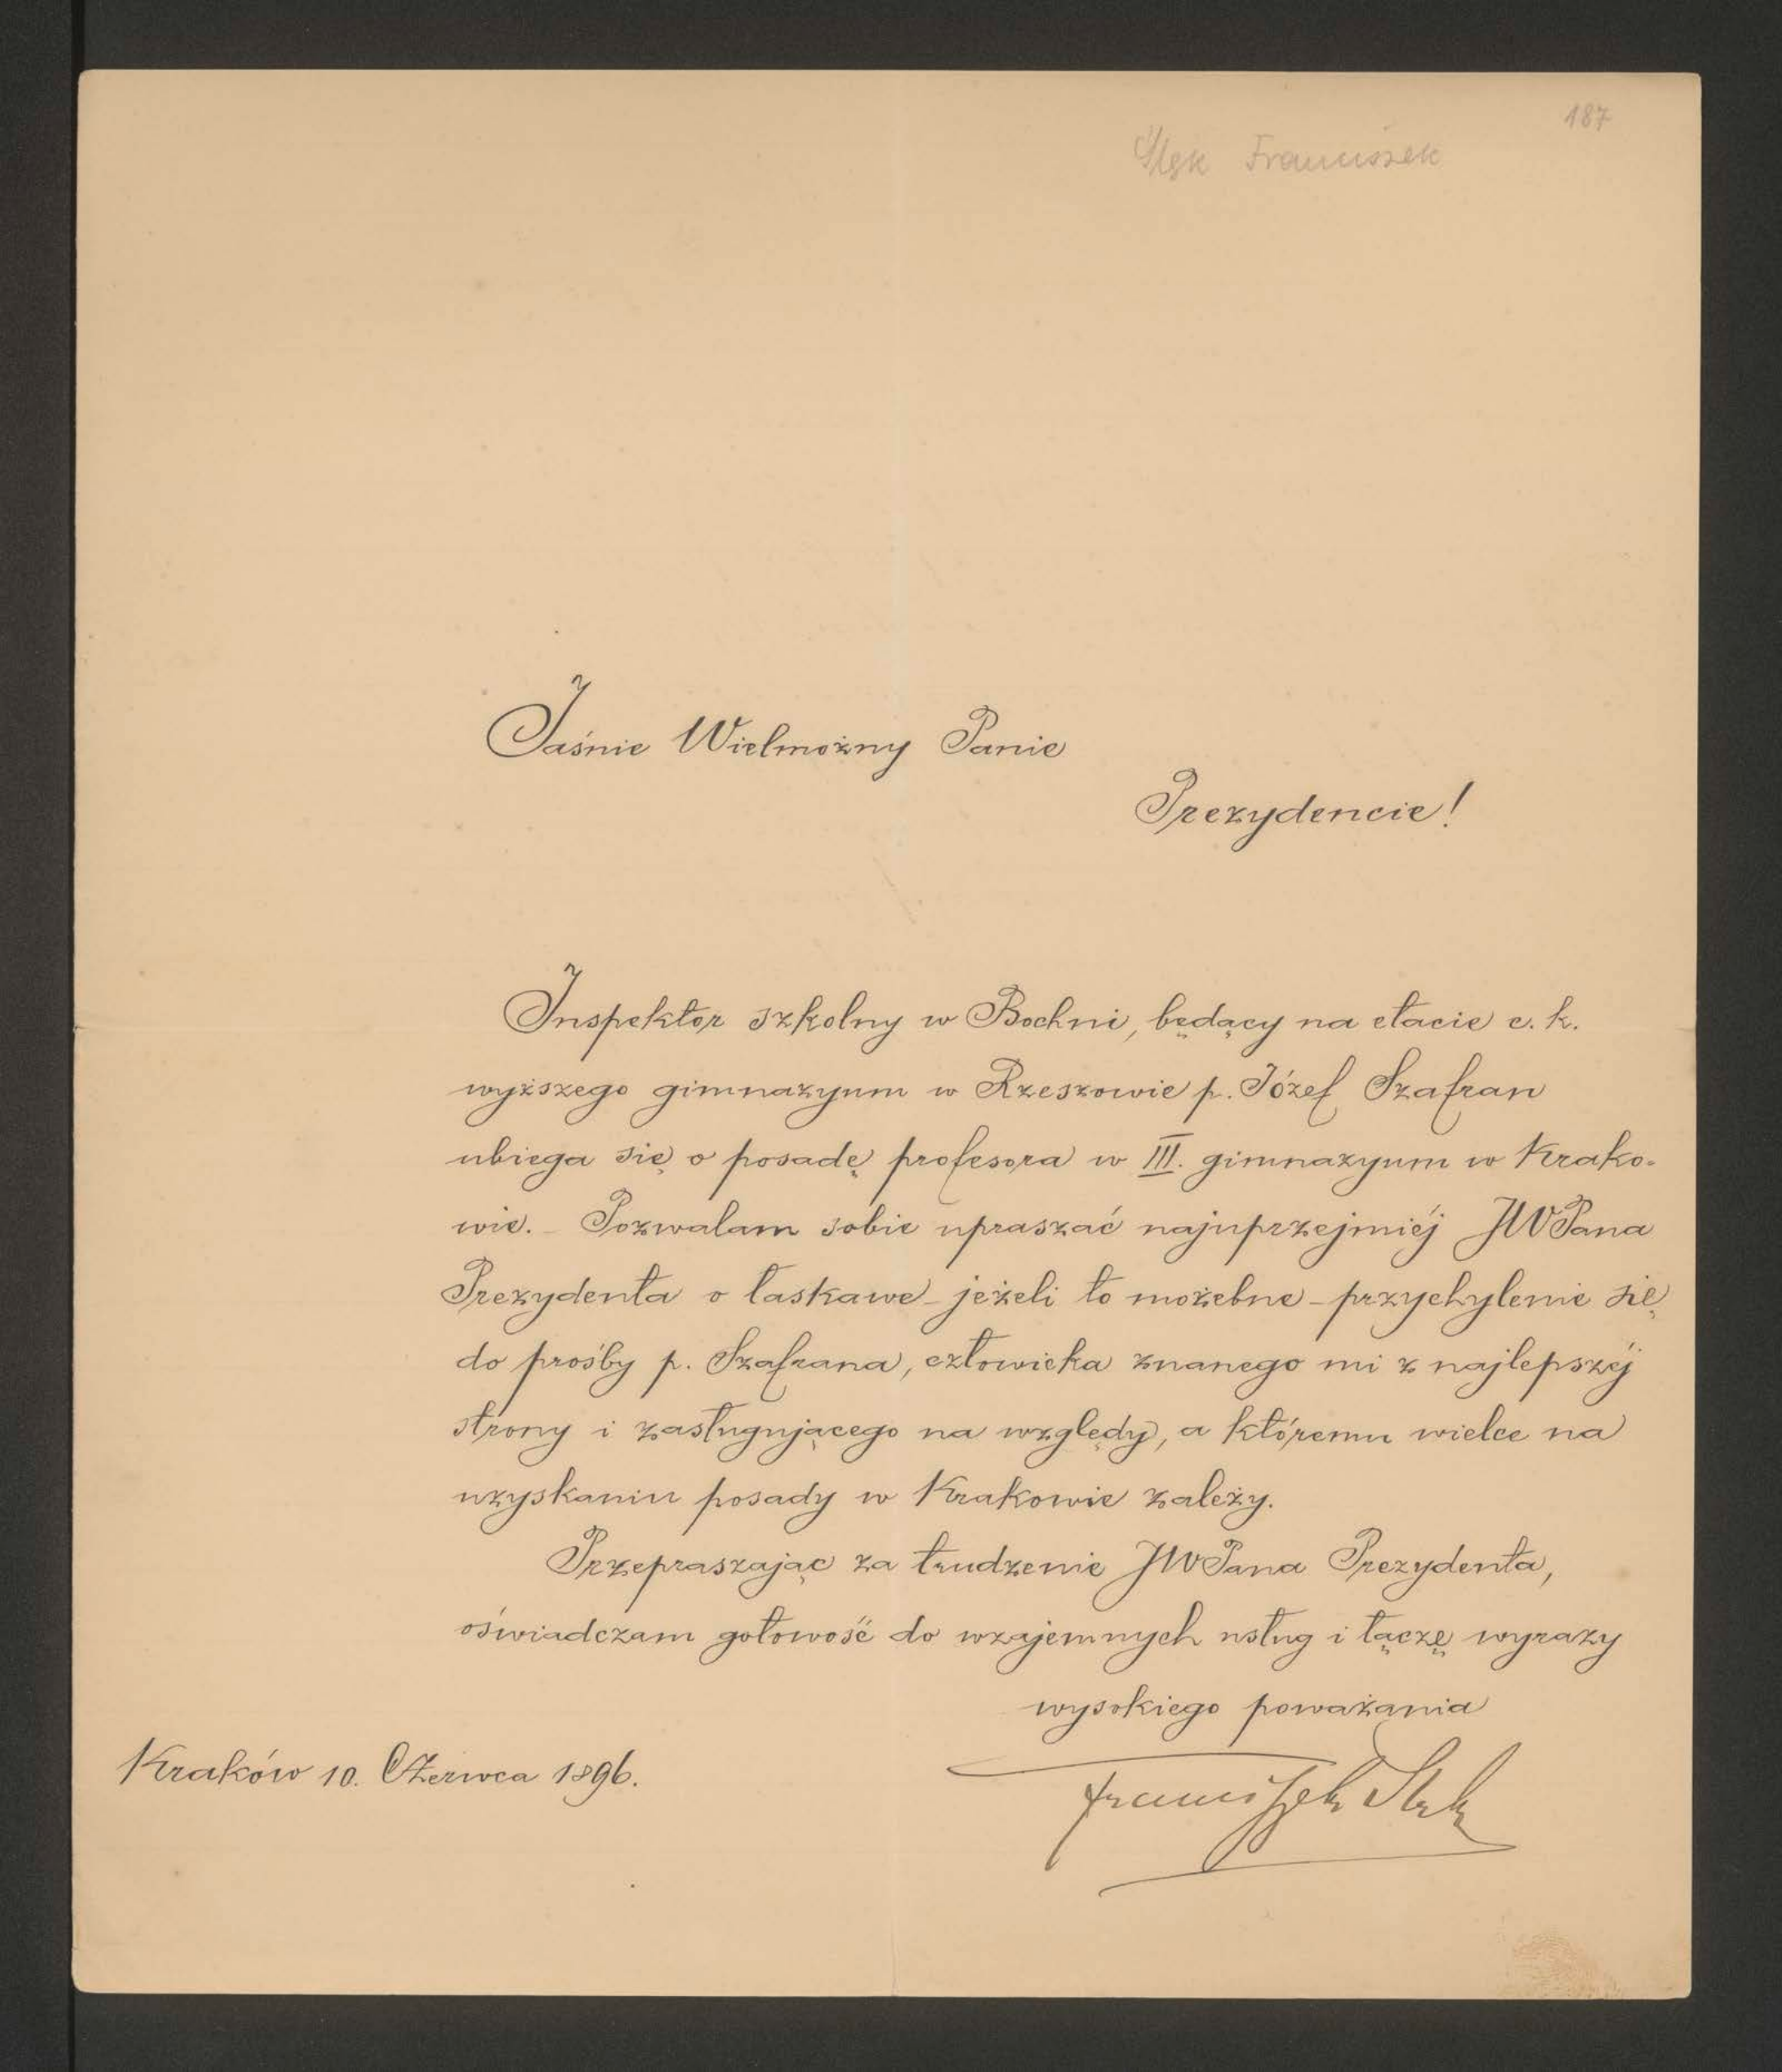 187
Ślęk Franciszek
Jaśnie Wielmożny Panie
Prezydencie!
Inspektor szkolny w Bochni, będący na etacie c. k.
wyższego gimnazyum w Rzeszowie p. Józef Szafran
ubiega się o posadę profesora w III. gimnazyum w Krako-
wie. - Pozwalam sobie upraszać najuprzejmiéj JWPana
Prezydenta o łaskawe - jeżeli to możebne - przychylenie się
do prośby p. Szafrana, człowieka znanego mi z najlepszéj
strony i zasługującego na względy, a któremu wielce na
uzyskaniu posady w Krakowie zależy.
Przepraszając za trudzenie JWPana Prezydenta,
oświadczam gotowość do wzajemnych usług i łączę wyrazy
wysokiego poważania
Kraków 10. Czerwca 1896.
Franciszek Slęk